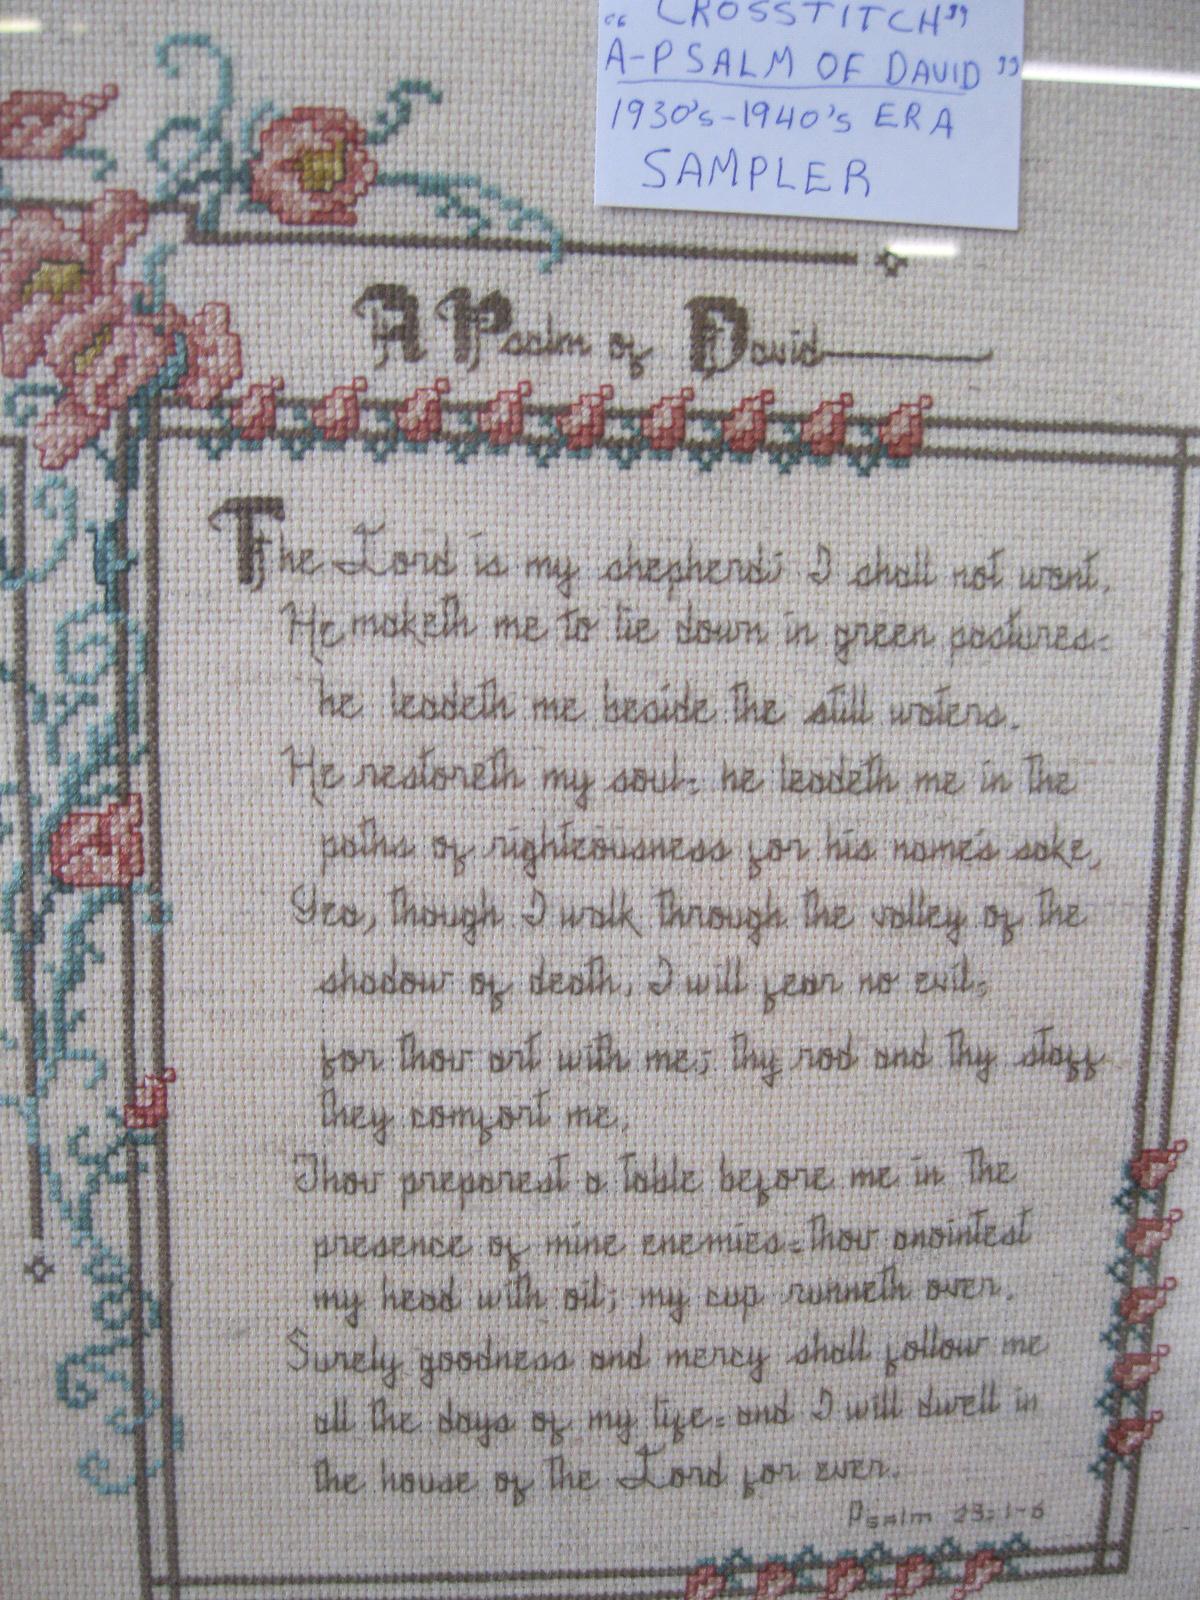 “ CROSSTITCH”
A-PSALM OF DAVID ”
1930's-1940's ERA
SAMPLER
A Psalm of David
The Lord is my shepherd; I shall not want.
He maketh me to lie down in green pastures:
he leadeth me beside the still waters.
He restoreth my soul: he leadeth me in the
paths of righteousness for his name's sake,
Yea, though I walk through the valley of the
shadow of death, I will fear no evil:
for thou art with me; thy rod and thy staff
they comfort me.
Thou preparest a table before me in the
presence of mine enemies: thou anointest
my head with oil; my cup runneth over.
Surely goodness and mercy shall follow me
all the days of my life: and I will dwell in
the house of the Lord for ever.
Psalm 23:1-6